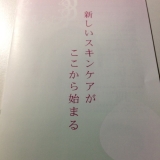 新しいスキンケアが
ここから始まる